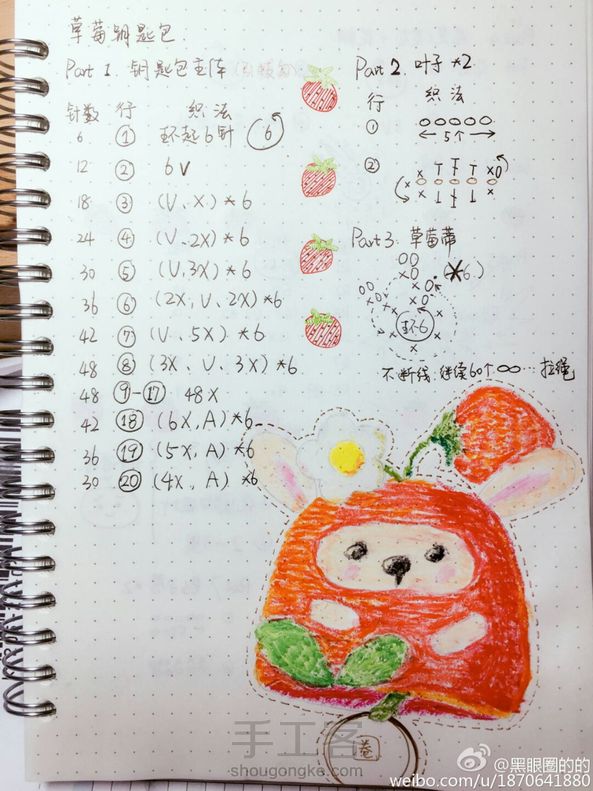 草莓钥匙包.
Part 1. 钥匙包主体
针数 行 织法
6 ① 环起6针 6
12 ② 6V
18 ③ (V、X)*6
24 ④ (V、2X)*6
30 ⑤ (V,3X)*6
36 ⑥ (2X,V、2X)*6
42 ⑦ (V、5X)*6
48 ⑧ (3X、V、3X)*6
48 ⑨-⑰ 48X
42 ⑱ (6X,A)*6
36 ⑲ (5X,A)*6
30 ⑳ (4X,A)*6
Part 2. 叶子 *2
行 织法
① ooooo
5个
②
Part 3. 草莓蒂
(*6)
环6
不断线,继续60个oo…拉绳
卷
手工客
shougongke.com
@黑眼圈的的
weibo.com/u/1870641880